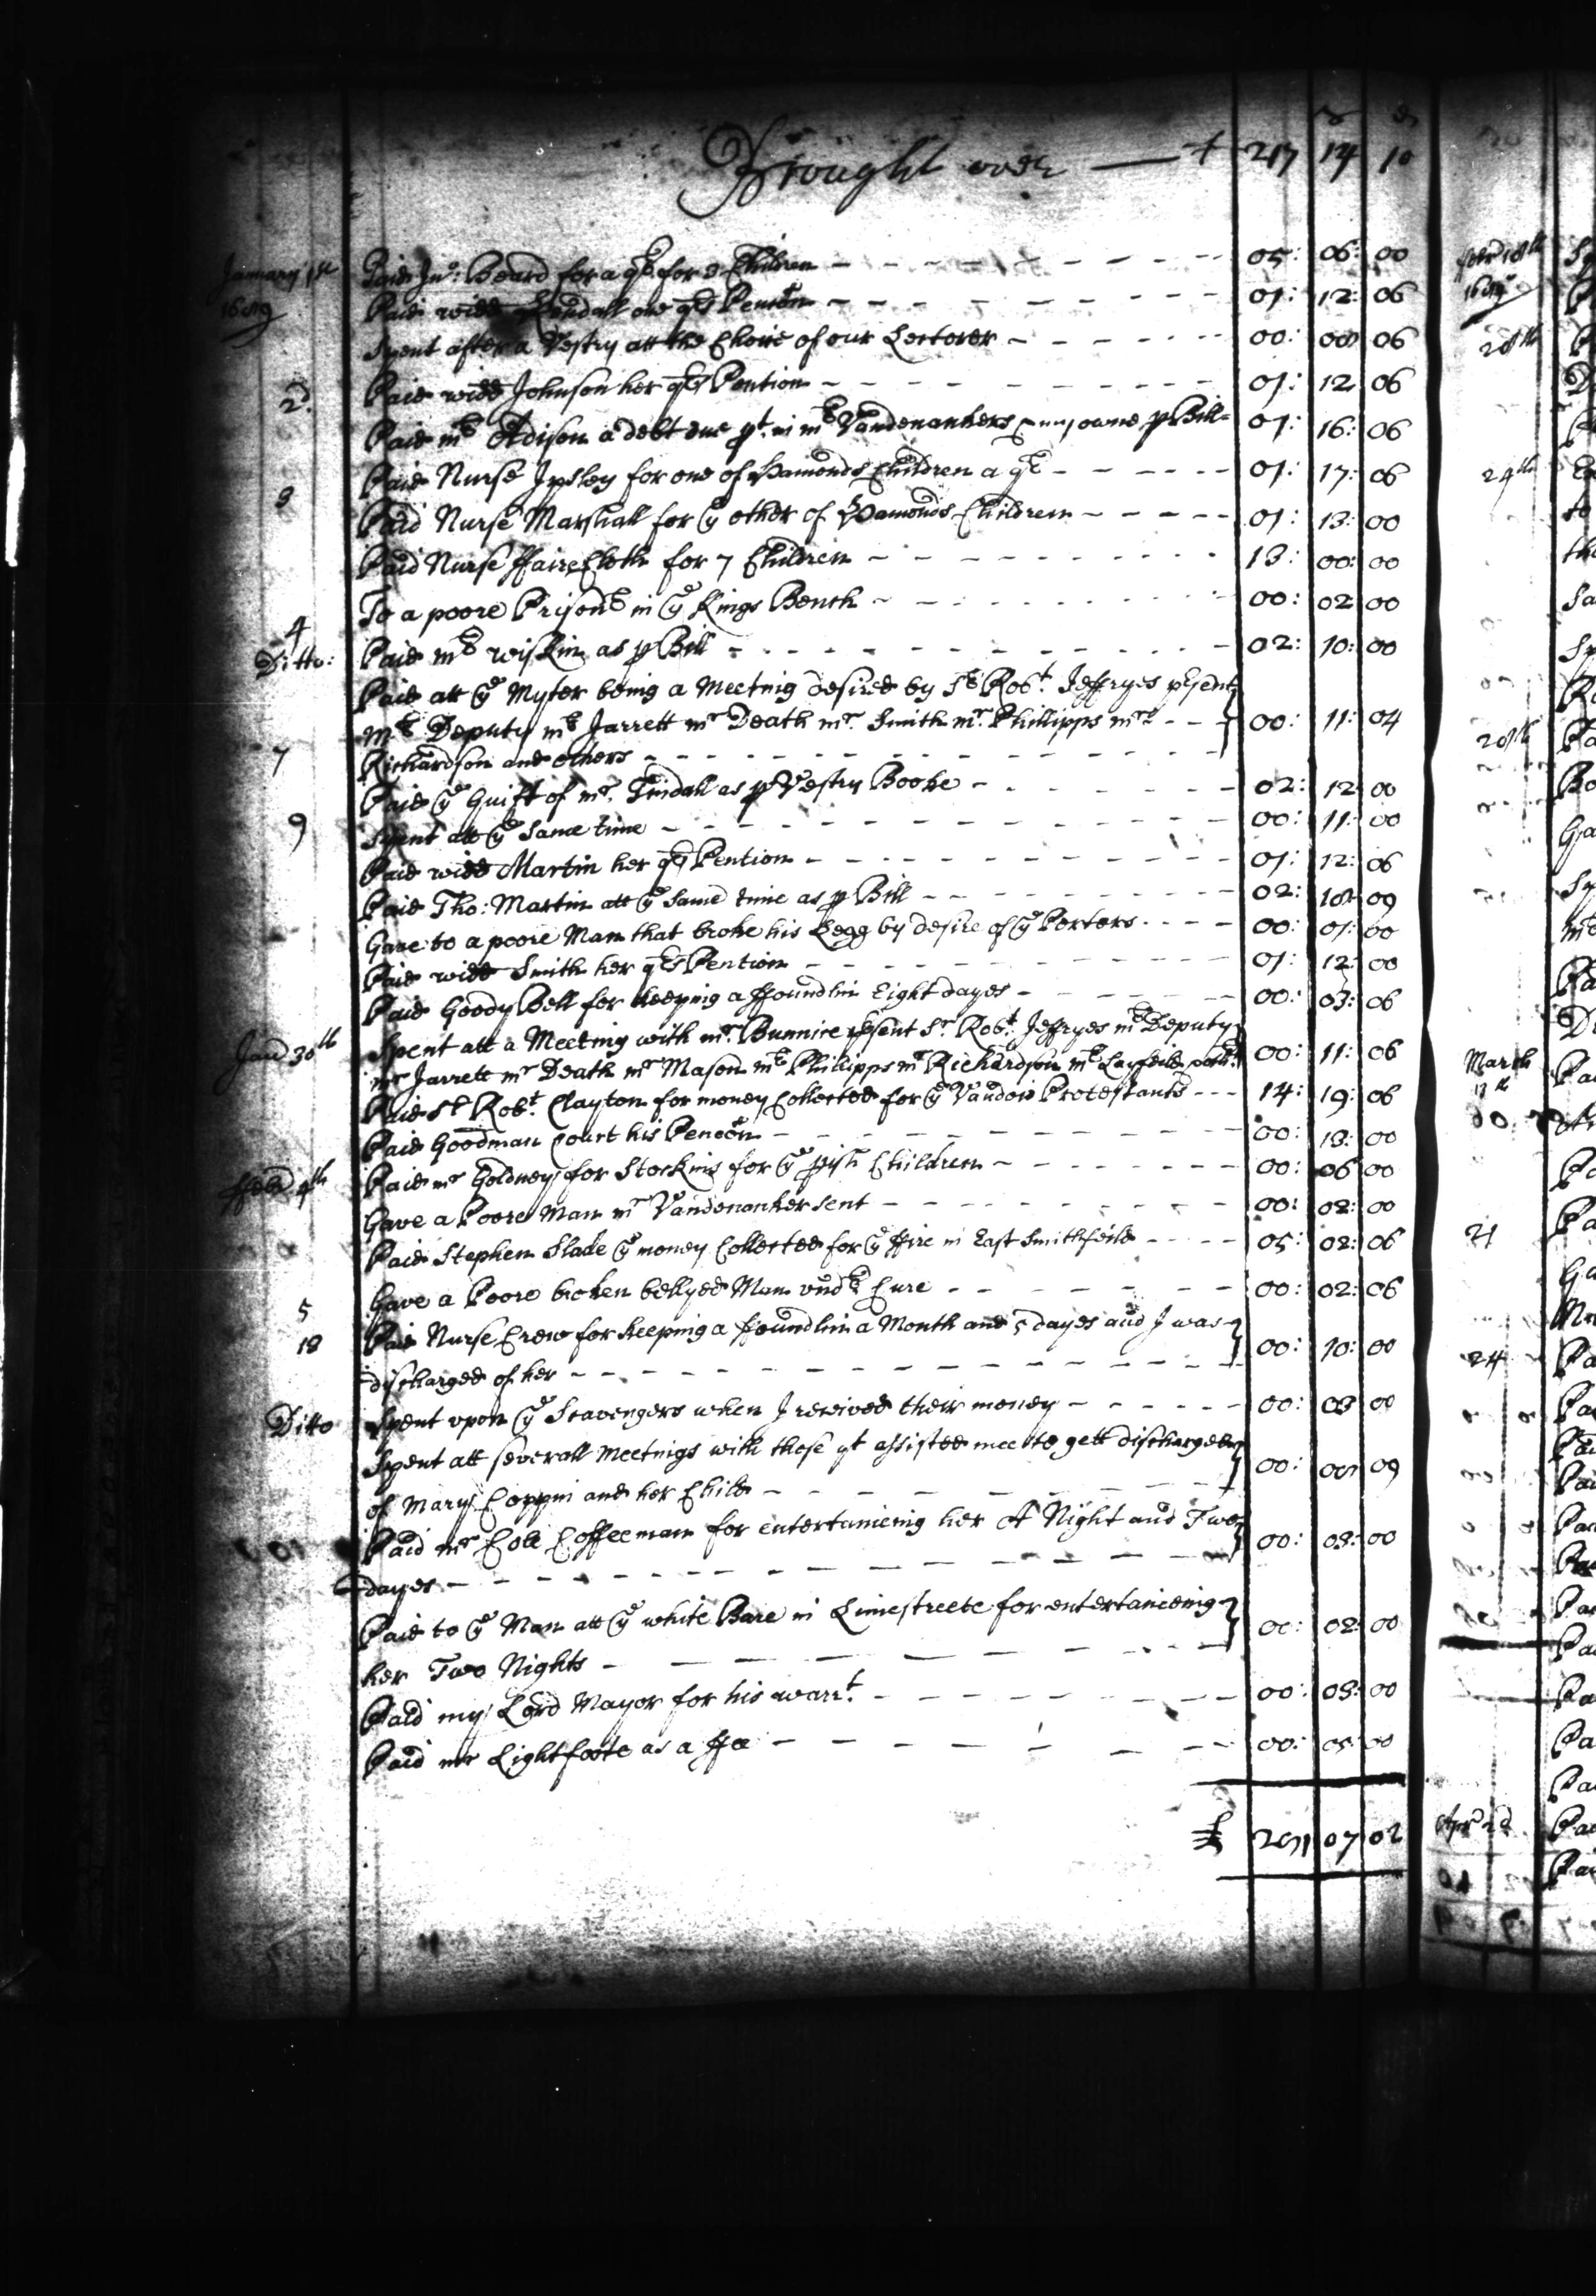 s d
Brought over — 217 14 10
January 1st Paid Jno: Beard for a qr for 3 Children - - - 05: 06: 00
1689 Paid widd Kendall one qrs Pencon - - - 01: 12: 06
Spent after a Vestry att the Choice of our Lectorer - - - 00: 08 06
2d. Paid widd Johnson her qrs Pention - - - 01: 12 06
Paid mr Adison a debt due pt. in mr Vandenankers my owne p Bill - 01: 16: 06
3 Paid Nurse Ipsley for one of Hamonds Children a qr - - - 01: 17: 06
Paid Nurse Marshall for ye other of Hamonds Children - - - 01: 13: 00
Paid Nurse ffaireCloth for 7 Children - - - 13: 00: 00
To a poore Prisonr in ye Kings Bench - - - 00: 02 00
4
Ditto: Paid mr wiskin as p Bill - - - 02: 10: 00
Paid att ye Myter being a Meeting desired by Sr Robt. Jeffryes psent
mr Deputy mr Jarrett mr Death mr. Smith mr. Phillipps mr - - 00: 11: 04
7 Richardson and others - - -
Paid ye Guift of mr. Kindall as p Vestry Booke - - - 02: 12 00
9 Spent att ye same time - - - 00: 11: 00
Paid widd Martin her qrs Pention - - - 01: 12: 06
Paid Tho: Martin att ye same time as p Bill - - - 02: 18 09
Gave to a poore Man that broke his Legg by desire of ye Porters - - - 00: 01: 00
Paid widd Smith her qrs Pention - - - 01: 12: 00
Paid Goody Bell for keeping a ffoundlin Eight dayes - - - 00: 03: 06
Jan 30th Spent att a Meeting with mr. Bunnire psent Sr. Robt. Jeffryes mr Deputy
mr Jarrett mr Death mr Mason mr Phillipps mr Richardson mr Layfeild 00: 11: 06
Paid Sr Robt. Clayton for money Collected for ye Vaudois Protestants - - - 14: 19: 06
Paid Goodman Court his Pencon - - - 00: 13: 00
ffeb 4th Paid mr Goldney for Stockins for ye pish Children - - - 00: 06 00
Gave a Poore Man mr Vandenanker sent - - - 00: 02: 00
Paid Stephen Slade ye money Collected for ye ffire in East Smithfeild - - - 05: 02: 06
5 Gave a Poore broken bellyed Man undr Cure - - - 00: 02: 06
18 Paid Nurse Crew for keeping a ffoundlin a Month and 5 dayes and I was
discharged of her - - - 00: 10: 00
Ditto Spent upon ye Scavengers when I received their money - - - 00: 03 00
Spent att severall meetings with those yt assisted mee to gett discharged
of Mary Coppin and her Child - - - 00: 00 09
Paid mr Cole Coffeeman for entertainieing her A Night and Two
dayes - - - 00: 03: 00
Paid to ye Man att ye white Bare in Limestreete for entertanieing
her Two Nights - - - 00: 02: 00
Paid my Lord Mayor for his warrt. - - - 00: 03: 00
Paid mr Lightfoote as a ffee - - - 00: 05: 00
£ 291 07 02
feb 18th
1689
20th
24th
28th
March
13th
21
24
Apr 2d